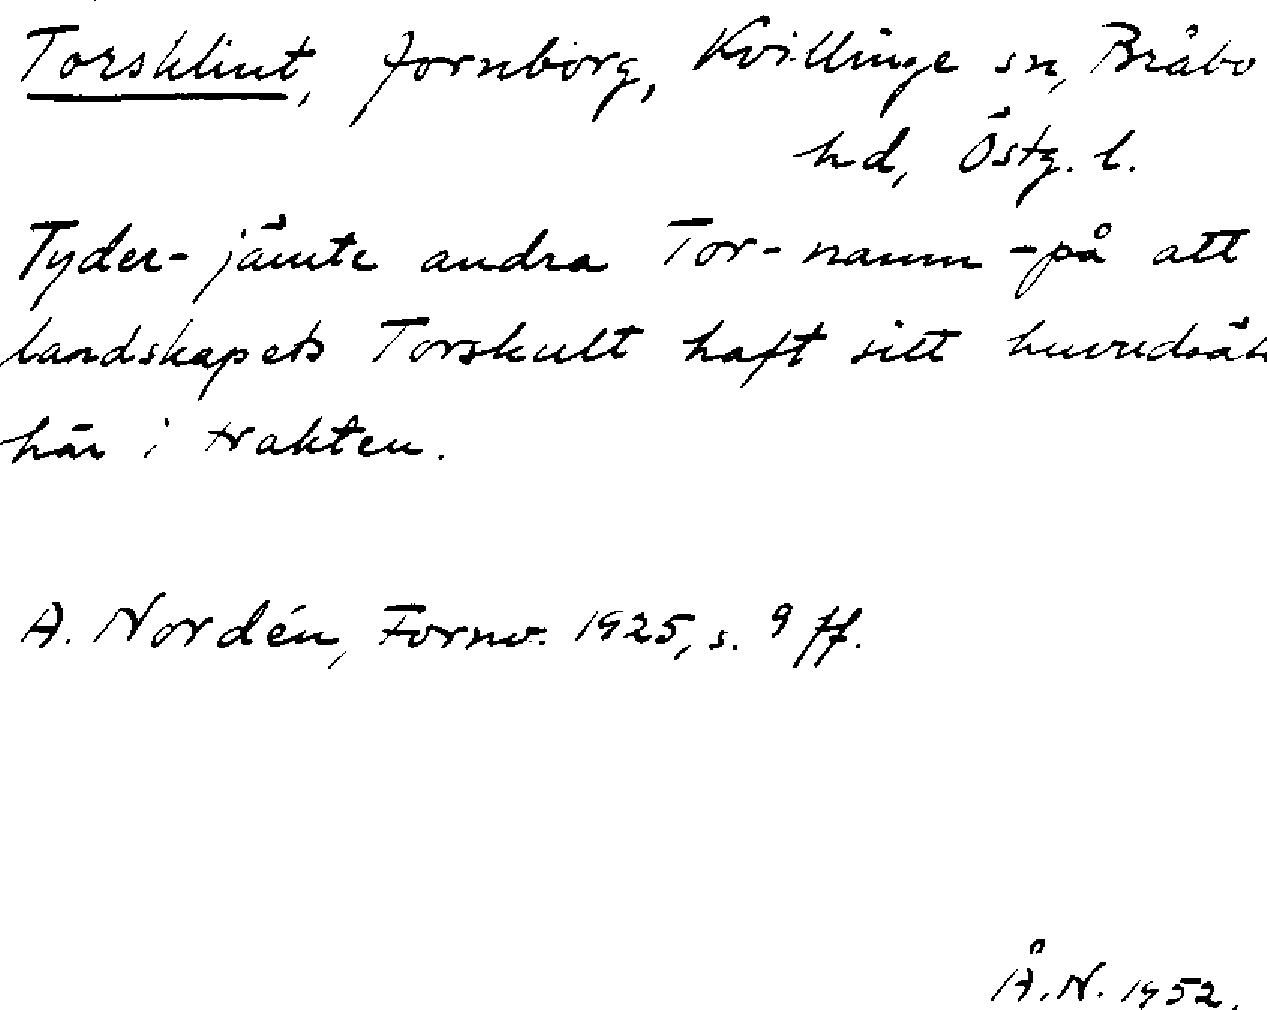 Torsklint, fornborg, Kvillinge sn, Bråbo
hd, Östg. l.
Tyder - jämte andra Tor- namn - på att
landskapets Torskult haft sitt huvudsäte
här i trakten.
A. Nordén, Fornv. 1925, s. 9 ff.
Å.N. 1952.